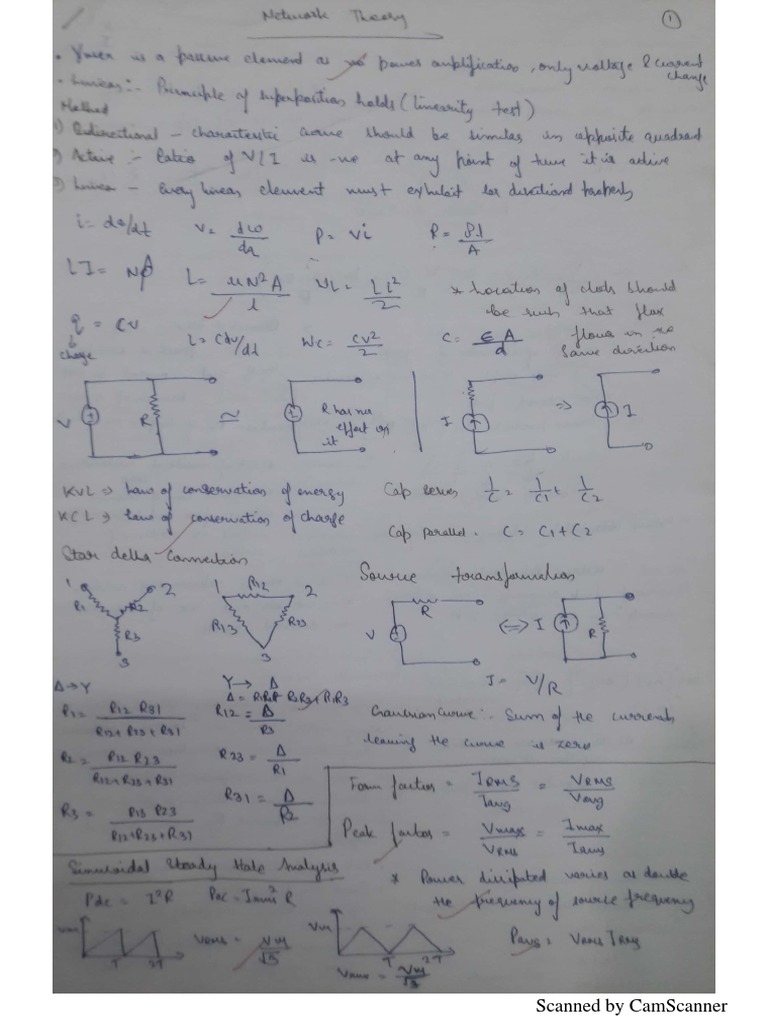 Network Theory
1
• Xmer is a passive element as no power amplification, only voltage & current
change
- Linear :- Principle of superposition holds (linearity test)
Method
1) Bidirectional - characteristic curve should be similar in opposite quadrant
2) Active :- Ratio of V/I is -ve at any point of time it is active
3) Linear - Every linear element must exhibit directional property
i = dq/dt   V = dω/dq   P = Vi   R = ρl/A
LI = Nφ   L = μN²A/l   WL = Li²/2
* Location of dots should
be such that flux
flows in
same direction
q = CV
charge
i = Cdv/dt   Wc = CV²/2   C = ∈A/d
V   R   ≃   R has no
effect on
it
I   ⇒   I
KVL → Law of conservation of energy
KCL → Law of conservation of charge
Cap series   1/C = 1/C1 + 1/C2
Cap parallel.   C = C1 + C2
Star delta Connection
1   2   R1   R2   R3   3
1   R12   2   R13   R23   3
Source transformation
V   R   ⇔   I   R
I = V/R
Δ → Y
R1 = R12 R31 / R12 + R23 + R31
R2 = R12 R23 / R12 + R23 + R31
R3 = R13 R23 / R12 + R23 + R31
Y → Δ
Δ = R1R2 + R2R3 + R1R3
R12 = Δ/R3
R23 = Δ/R1
R31 = Δ/R2
Gaussian Curve :- Sum of the currents
leaving the curve is zero
Form factor = IRMS/Iavg = VRMS/Vavg
Peak factor = Vmax/VRMS = Imax/Irms
Sinusoidal Steady State Analysis
Pdc = I²R   Pac = Irms² R
* Power dissipated varies as double
the frequency of source frequency
Pavg = VRMS IRMS
Vm   T   2T   VRMS = Vm/√3
Vm   T   2T   Vrms = Vm/√3
Scanned by CamScanner